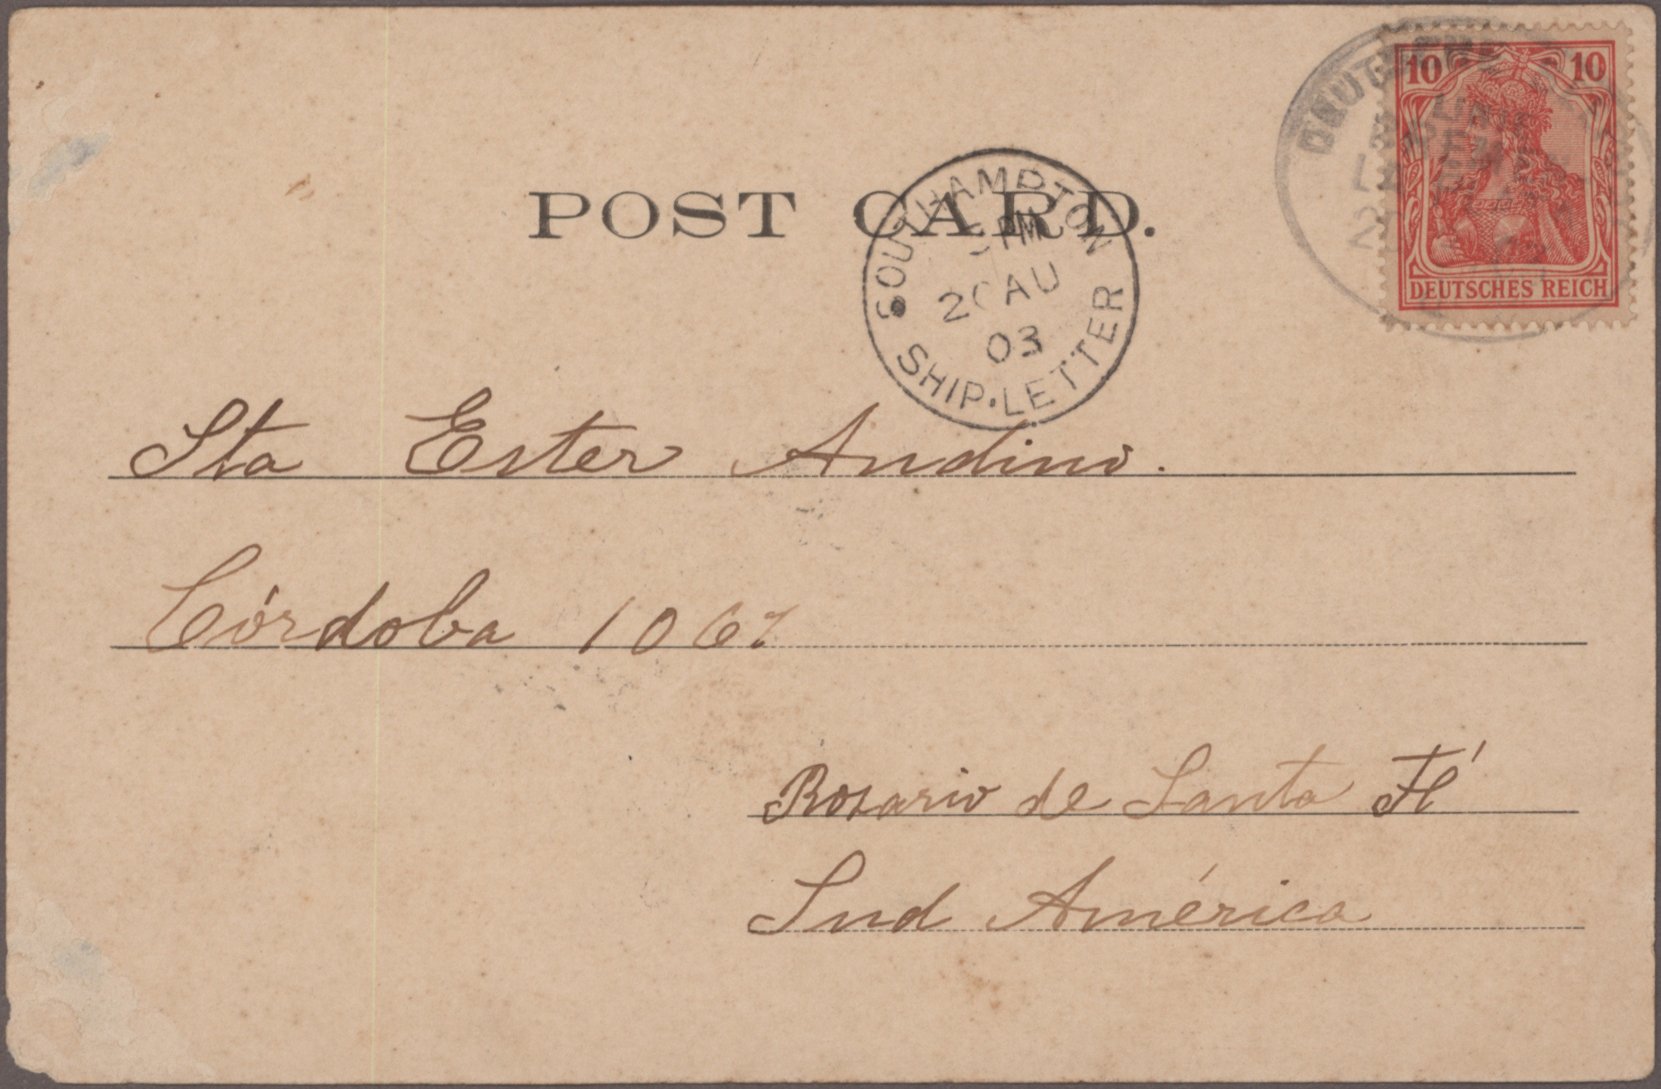 POST CARD.
10 10
DEUTSCHES REICH
SOUTHAMPTON
PM
AU
03
SHIP·LETTER
Sta Ester Andino.
Córdoba 1067
Rosario de Santa Fé
Sud América